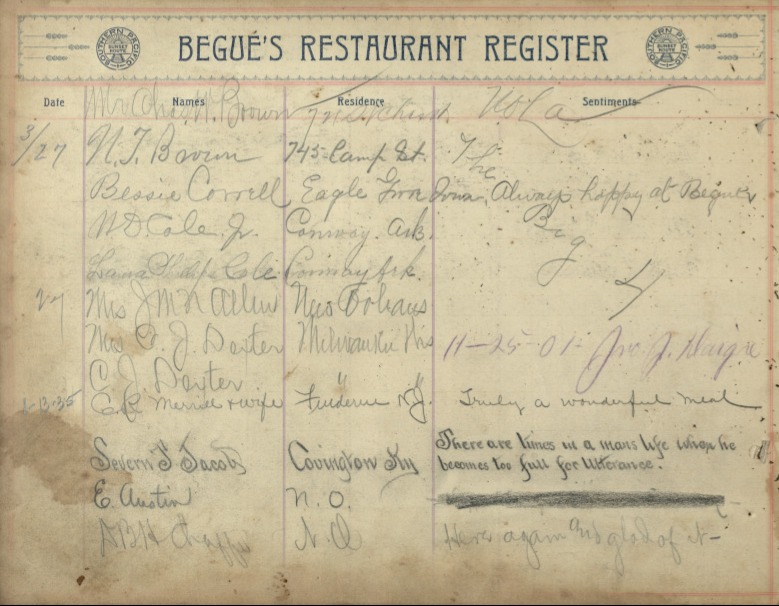 SOUTHERN PACIFIC SUNSET ROUTE
BEGUÉ'S RESTAURANT REGISTER
SOUTHERN PACIFIC SUNSET ROUTE
Date Names Residence Sentiments
Mr Chas W. Brown NOLa
3/27 N. T. Brown 745 Camp St. The
Bessie Correll Eagle Iowa, Always happy at Begues
W. D. Cole Jr. Conway. Ark. Big
Cole Conway Ark. 4
27 Mrs Allen New Orleans
Mrs C. J. Dexter Milwaukee Wis 11-25-01- Jno. J.
C. J. Dexter " "
E. R. Merrill & wife N.Y. Truly a wonderful meal
Severn F Jacobs Covington Ky There are times in a mans life when he
becomes too full for utterance.
E. Austin N. O.
N. O Here again and glad of it-